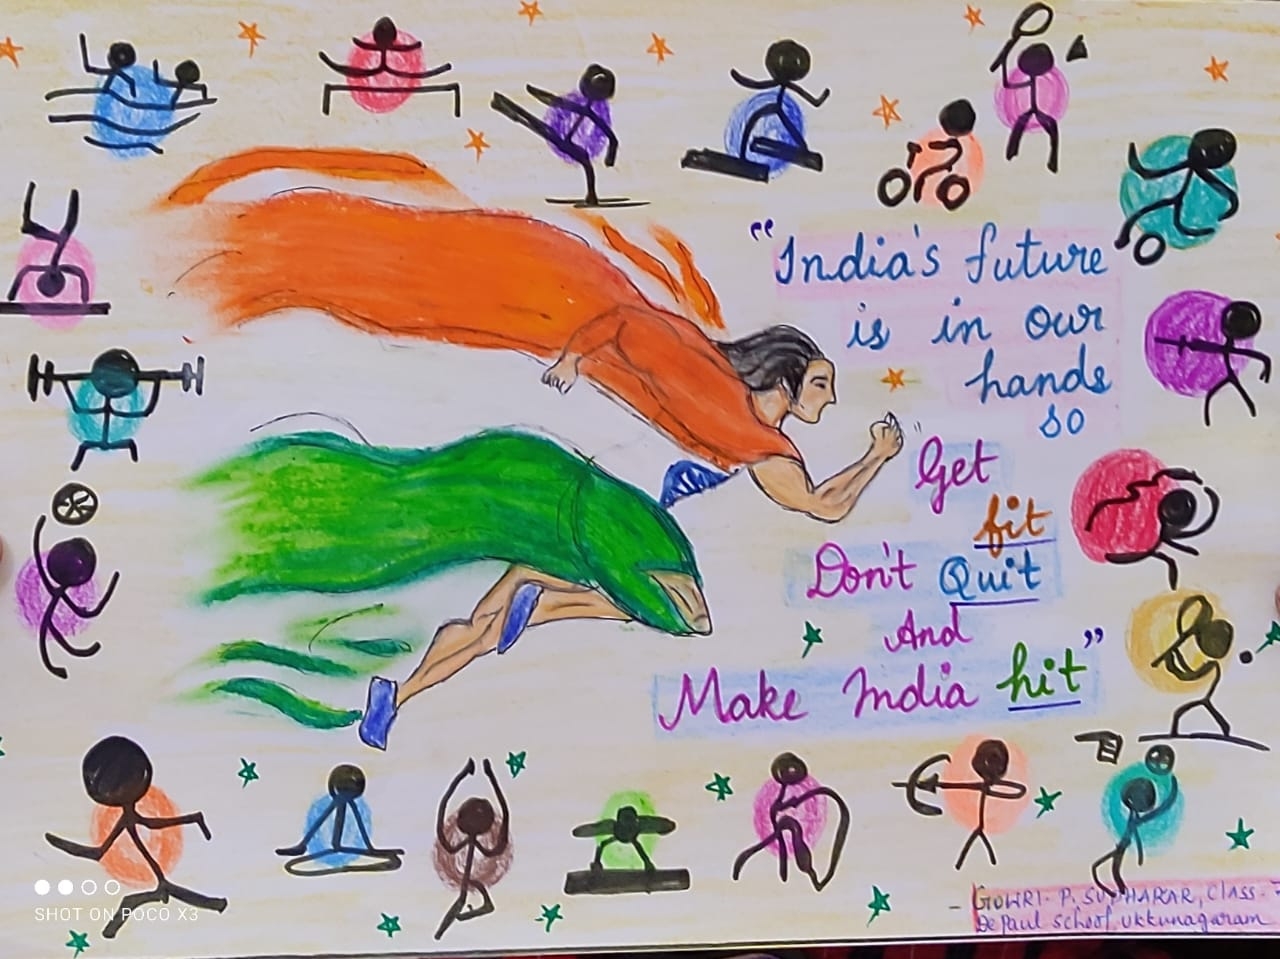 "India's future
is in our
hands
so
Get
fit
Don't Quit
And
Make India hit"
SHOT ON POCO X3
- GOWRI. P. SUDHAKAR, Class - 7
De Paul school, ukkunagaram